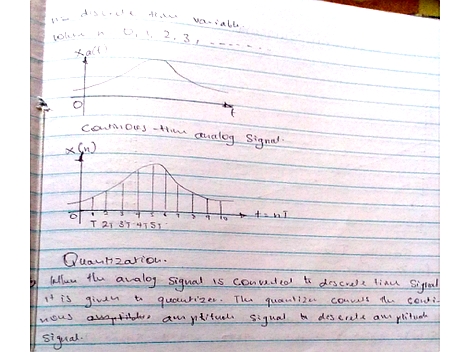 n = discrete time variable.
when n 0, 1, 2, 3, ------
xa(t)
0 t
Continoes-time analog signal.
x(n)
0 1 2 3 4 5 6 7 8 9 10 t = nT
T 2T 3T 4T 5T
Quantization.
When the analog signal is converted to discrete time signal
it is given to quantizer. The quantizer convets the conti-
nous amplitude signal to descrete amplitude
signal.